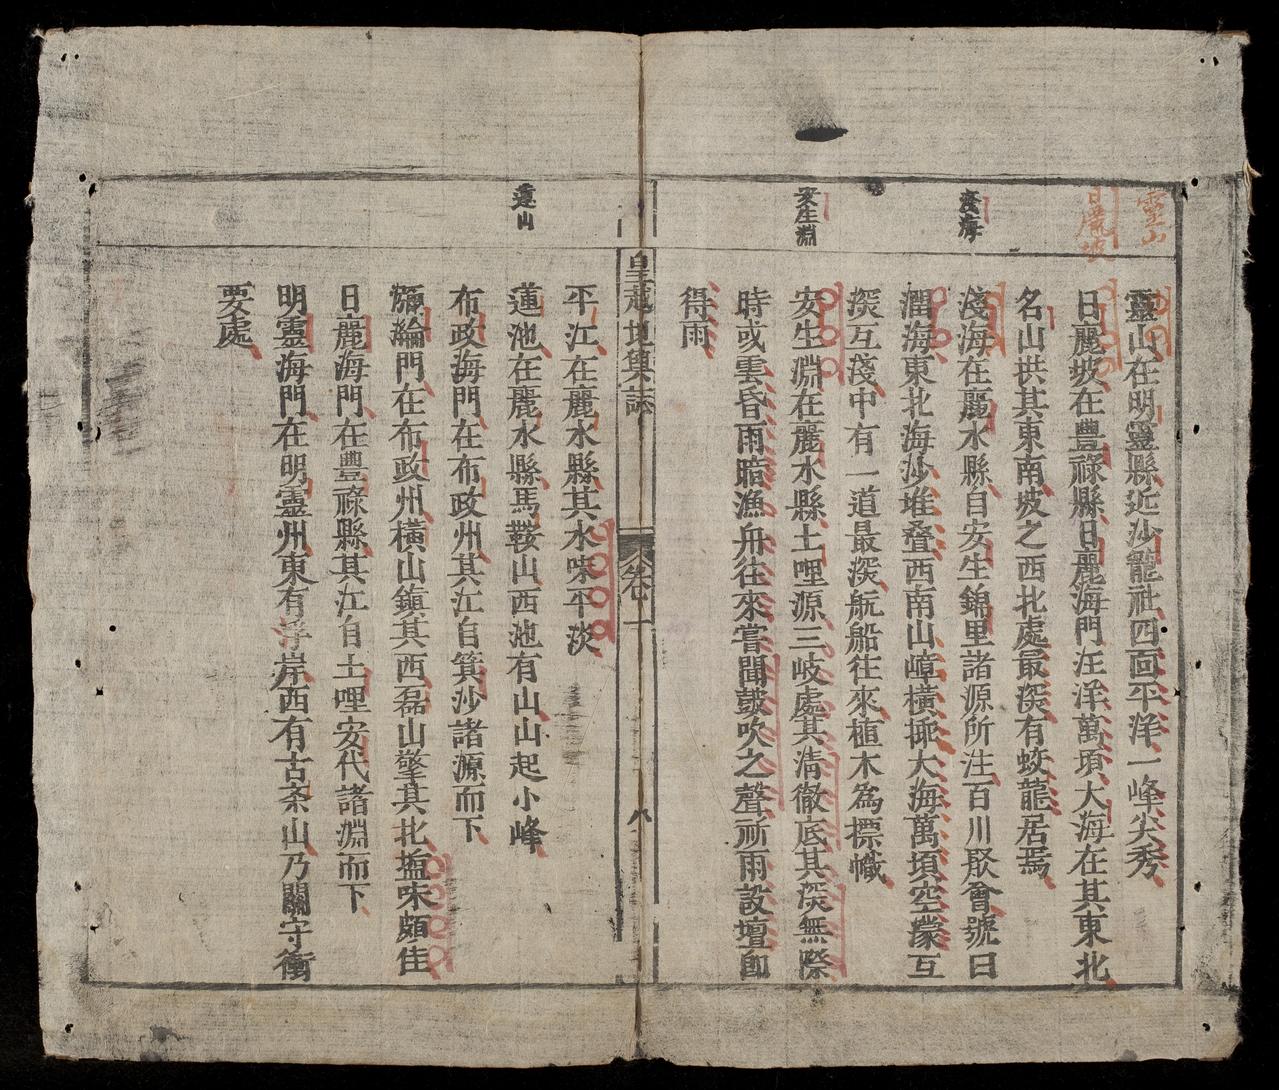 靈山
日麗坡
淺海
安生淵
靈山在明靈縣近沙龍社四面平洋一峰尖秀
日麗坡在豐祿縣日麗海門汪洋萬頃大海在其東北
名山拱其東南坡之西北處最深有蛟龍居焉
淺海在麗水縣自安生錦里諸源所注百川聚會號曰
澗海東北海沙堆叠西南山嶂橫排大海萬頃空濛互
深互淺中有一道最深舤船往來植木為摽幟
安生淵在麗水縣土哩源三岐處其清徹底其深無際
時或雲昏雨暗漁舟往來嘗聞皷吹之聲祈雨設壇卽
得雨
皇越地輿誌
卷一
八
蓮山
平江在麗水縣其水味平淡
蓮池在麗水縣馬鞍山西池有山山起小峰
布政海門在布政州其江自箕沙諸源而下
瀰綸門在布政州橫山鎮其西磊山擎其北塩味頗佳
日麗海門在豐祿縣其江自土哩安代諸淵而下
明靈海門在明靈州東有浮岸西有古斎山乃關守衝
要處